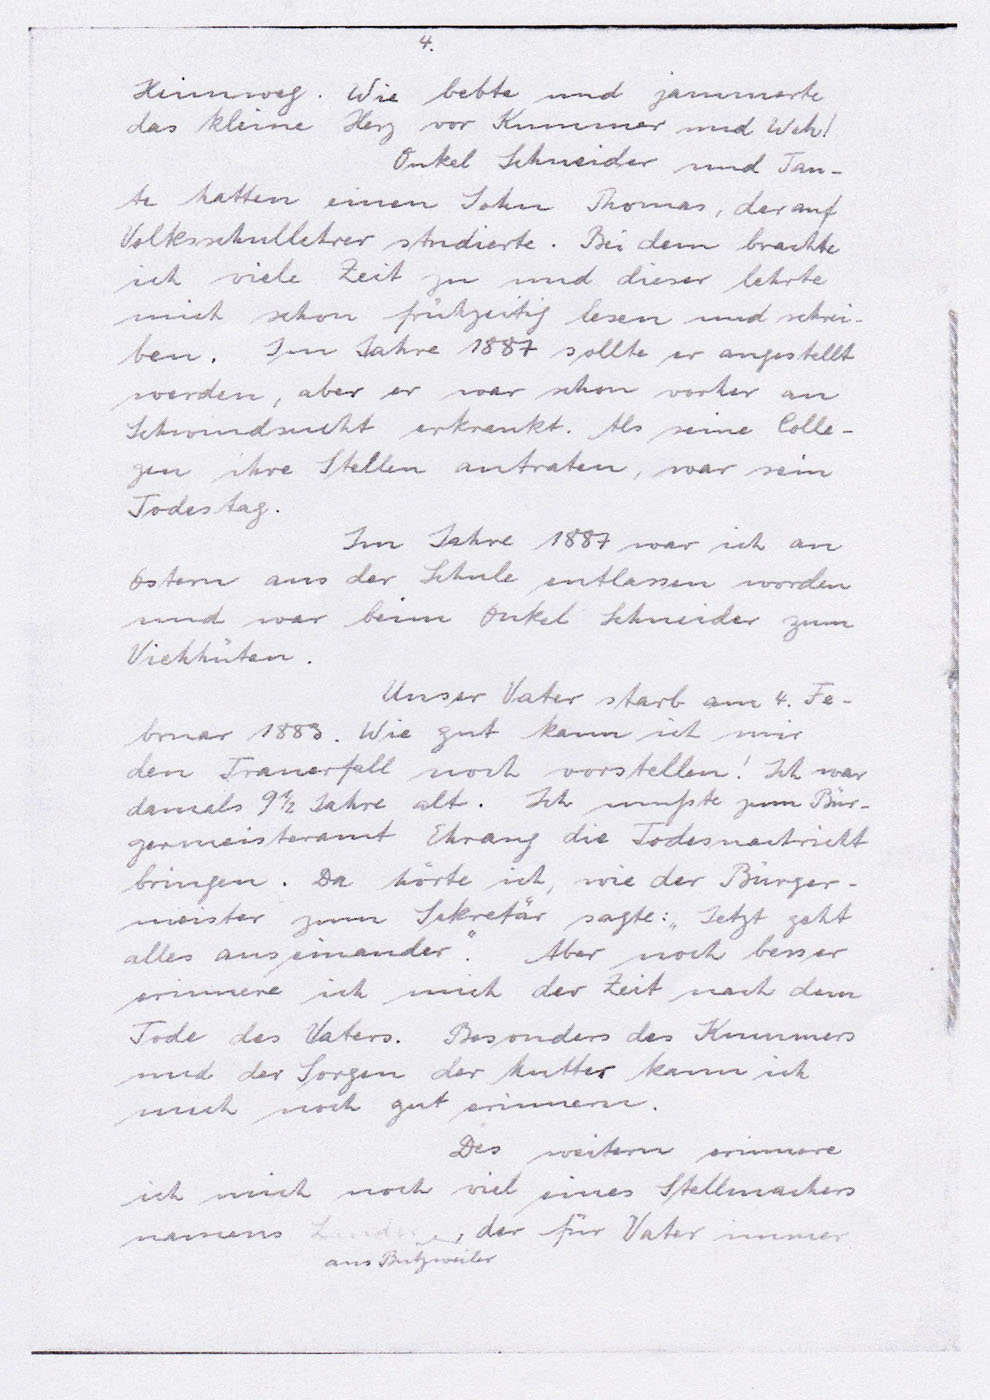 4.
Heimweg. Wie bebte und jammerte
das kleine Herz vor Kummer und Weh!
Onkel Schneider und Tan-
te hatten einen Sohn Thomas, der auf
Volksschullehrer studierte. Bei dem brachte
ich viele Zeit zu und dieser lehrte
mich schon frühzeitig lesen und schrei-
ben. Im Jahre 1887 sollte er angestellt
werden, aber er war schon vorher an
Schwindsucht erkrankt. Als seine Colle-
gen ihre Stellen antraten, war sein
Todestag.
Im Jahre 1887 war ich an
Ostern aus der Schule entlassen worden
und war beim Onkel Schneider zum
Viehhüten.
Unser Vater starb am 4. Fe-
bruar 1883. Wie gut kann ich mir
den Trauerfall noch vorstellen! Ich war
damals 9 1/2 Jahre alt. Ich mußte zum Bür-
germeisteramt Ehrang die Todesnachricht
bringen. Da hörte ich, wie der Bürger-
meister zum Sekretär sagte: „Jetzt geht
alles auseinander". Aber noch besser
erinnere ich mich der Zeit nach dem
Tode des Vaters. Besonders des Kummers
und der Sorgen der Mutter kann ich
mich noch gut erinnern.
Des weitern erinnere
ich mich noch viel eines Stellmachers
namens , der für Vater immer
aus Butzweiler